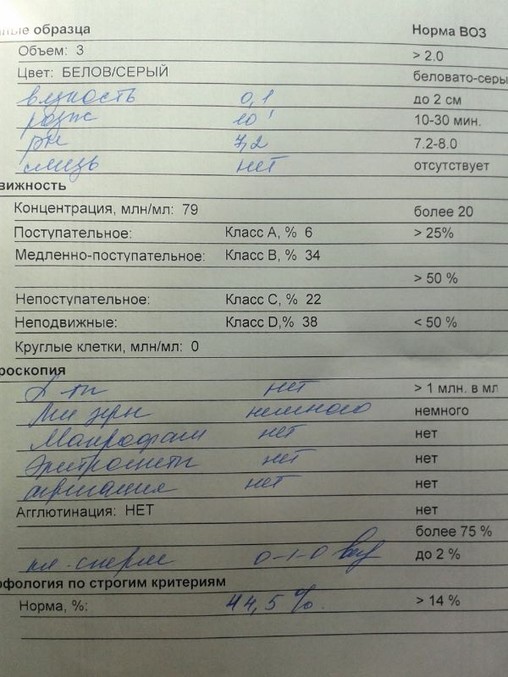 ные образца Норма ВОЗ
Объем: 3 > 2.0
Цвет: БЕЛОВ/СЕРЫЙ беловато-серы
вязкость 0,1 до 2 см
разж 10' 10-30 мин.
рН 7,2 7.2-8.0
слизь нет отсутствует
вижность
Концентрация, млн/мл: 79 более 20
Поступательное: Класс А, % 6 > 25%
Медленно-поступательное: Класс В, % 34
> 50 %
Непоступательное: Класс С, % 22
Неподвижные: Класс D,% 38 < 50 %
Круглые клетки, млн/мл: 0
роскопия
L-ты нет > 1 млн. в мл
зерн немного немного
Макрофаги нет нет
Эритроциты нет нет
агрегация нет нет
Агглютинация: НЕТ нет
более 75 %
кл. сперм 0-1-0 до 2 %
рфология по строгим критериям
Норма, %: 44,5 % > 14 %